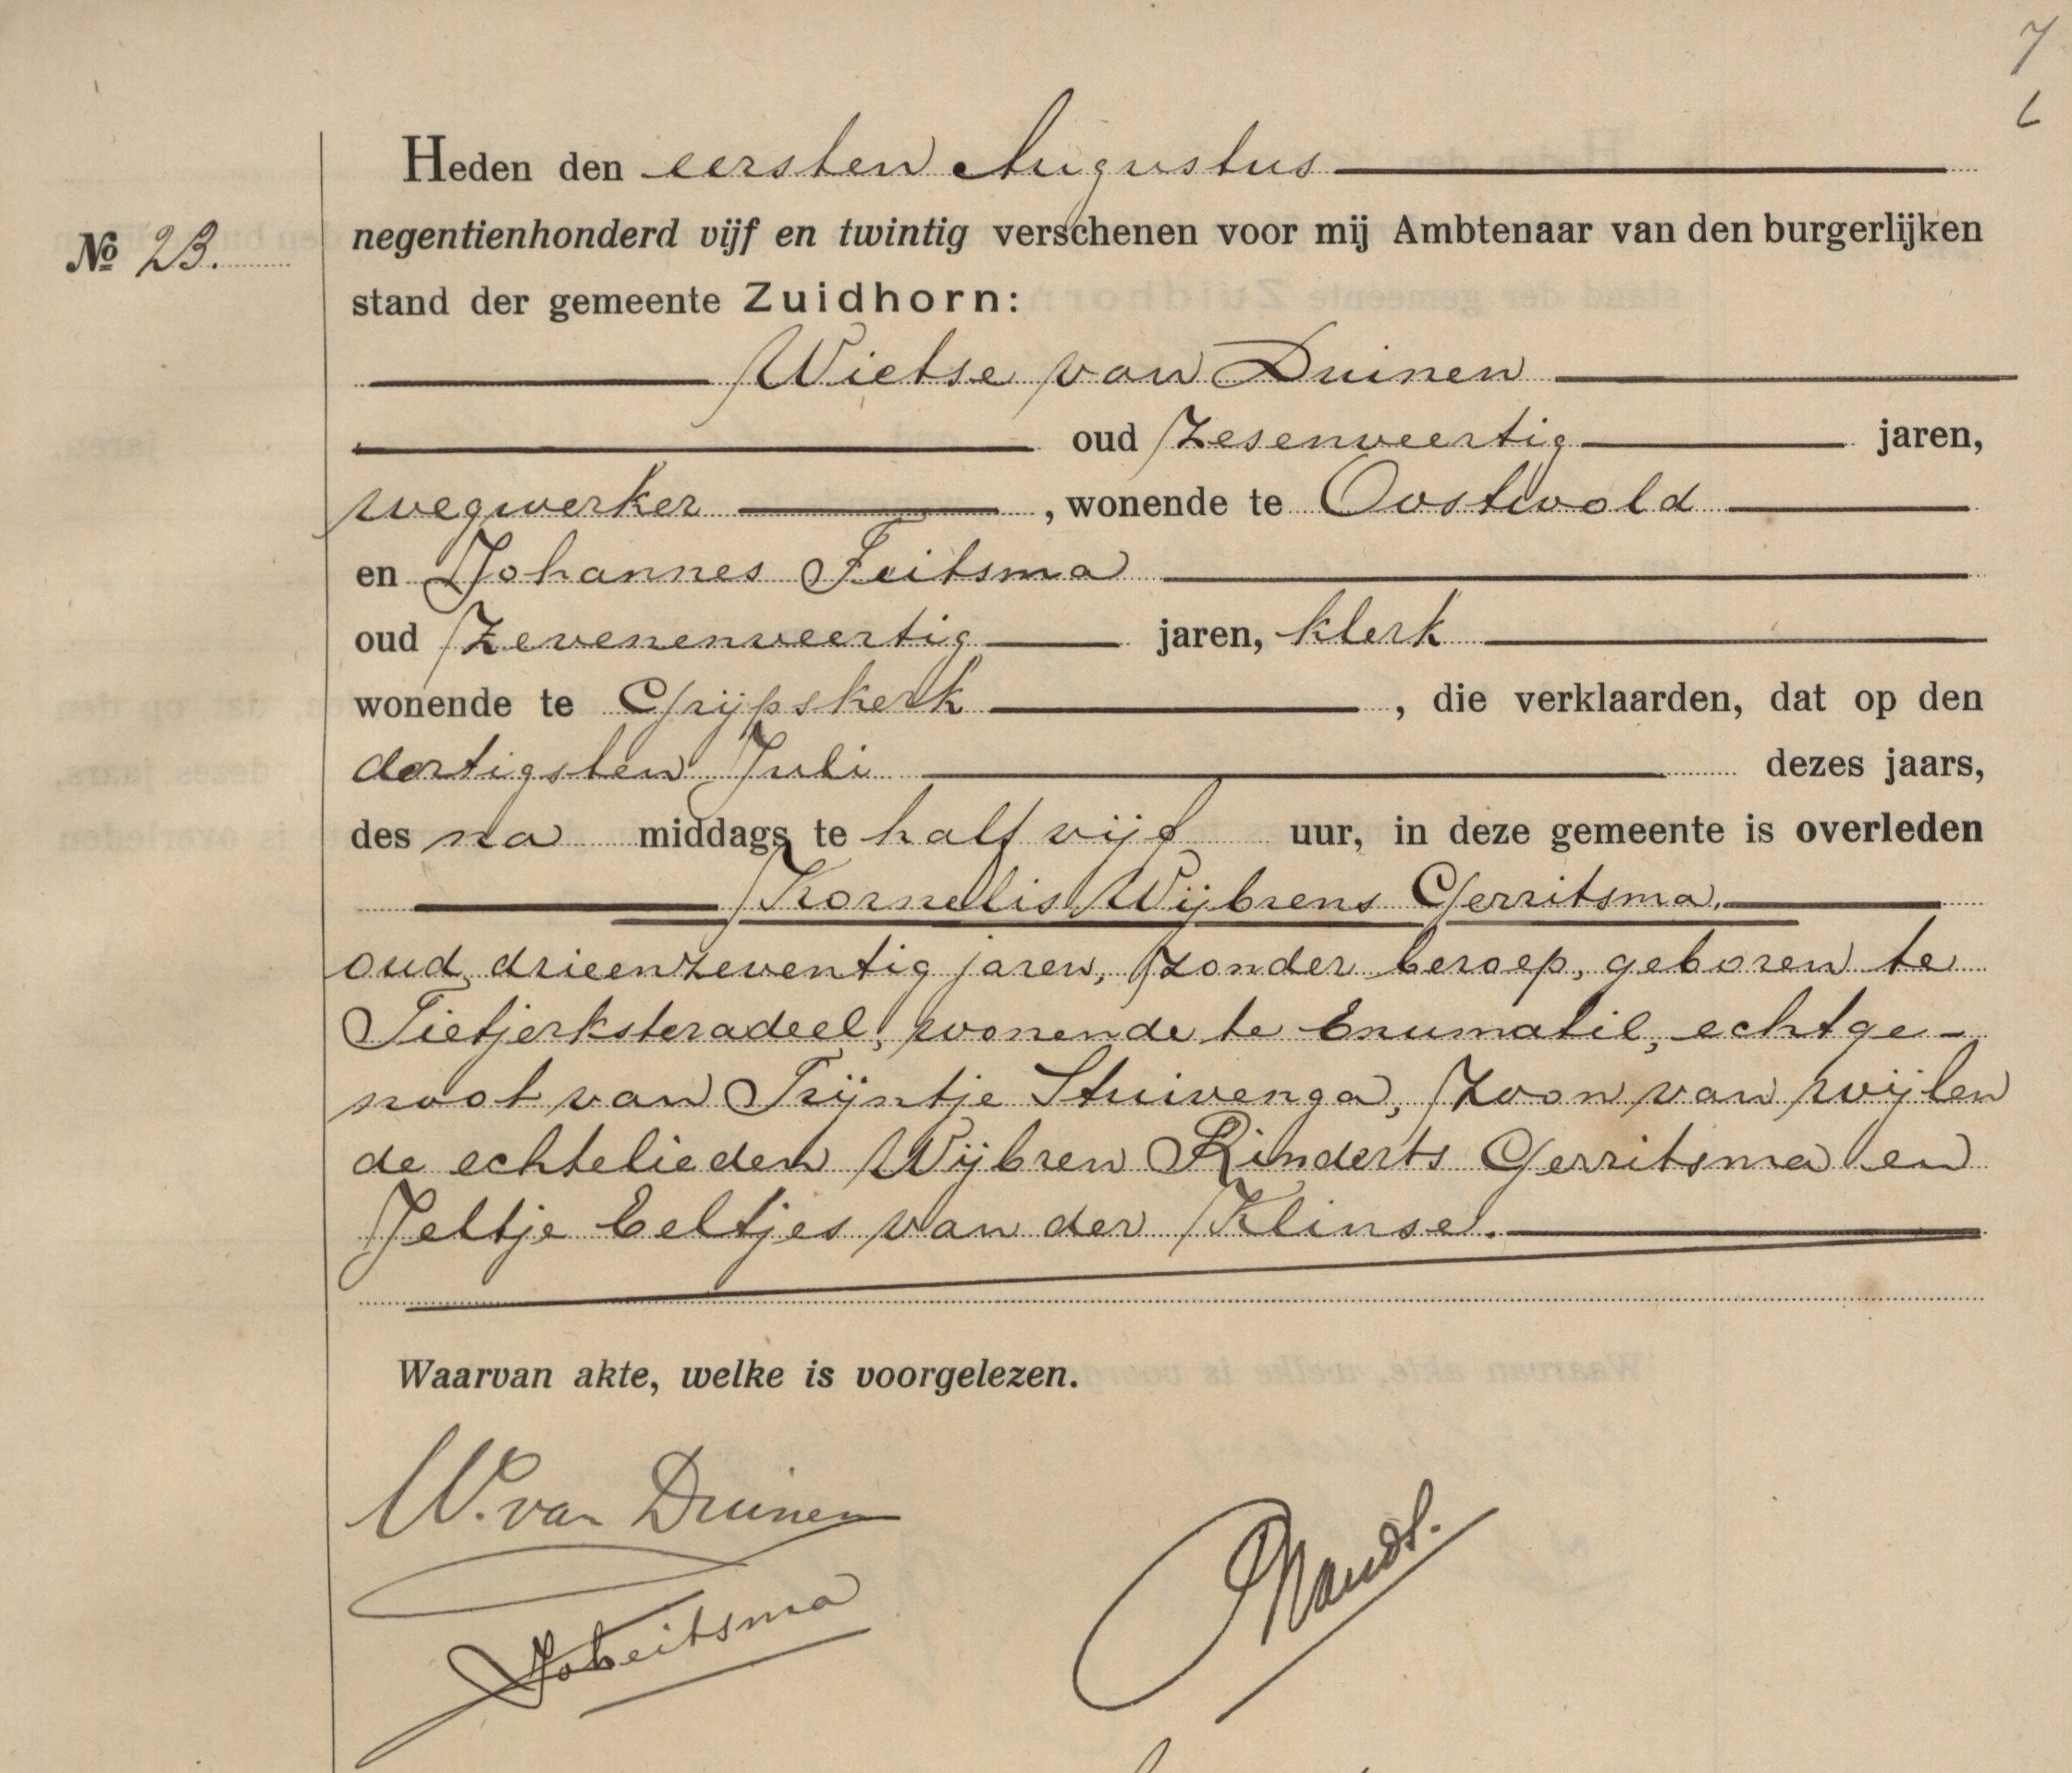 7
Heden den eersten Augustus
negentienhonderd vijf en twintig verschenen voor mij Ambtenaar van den burgerlijken
№ 23.
stand der gemeente Zuidhorn:
Wietse van Duinen
oud zesenveertig jaren,
wegwerker, wonende te Oostwold
en Johannes Feitsma
oud zevenenveertig jaren, klerk
wonende te Grijpskerk, die verklaarden, dat op den
dertigsten Juli dezes jaars,
des na middags te half vijf uur, in deze gemeente is overleden
Kornelis Wijbrens Gerritsma,
oud drieenzeventig jaren, zonder beroep, geboren te
Tietjerksteradeel, wonende te Enumatil, echtge-
noot van Trijntje Stuivenga, zoon van wijlen
de echtelieden Wijbren Rinderts Gerritsma en
Jeltje Eeltjes van der Klinse.
Waarvan akte, welke is voorgelezen.
W. van Duinen
Joh Feitsma